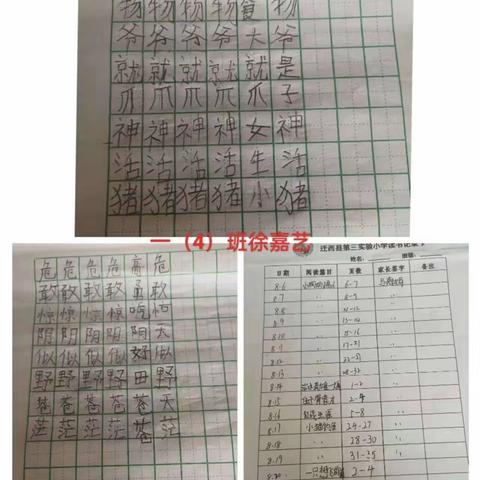 物物物物食物
爷爷爷爷大爷
就就就就就是
爪爪爪爪爪子
神神神神女神
活活活活生活
猪猪猪猪小猪
一（4）班徐嘉艺
危危危危高危
敢敢敢敢勇敢
惊惊惊惊
阴阴阴阴阴天
似似似似好似
野野野野田野
苍苍苍苍苍天
茫茫茫茫苍茫
迁西县第三实验小学读书记录卡
姓名: 班级:
日期 阅读篇目 页数 家长签字 备注
8.6 6-7
8.7 〃 8-9 〃
8.8 〃 〃
8.9 〃 〃
8.10 〃 15-16 〃
8.11 〃 17-21 〃
8.12 〃 〃
8.13 〃 28-32 〃
8.14 1-2 〃
8.15 2-4 〃
8.16 5-8 〃
8.17 24-27 〃
8.18 〃 28-30 〃
8.19 〃 31-35 〃
8.20 2-4 〃